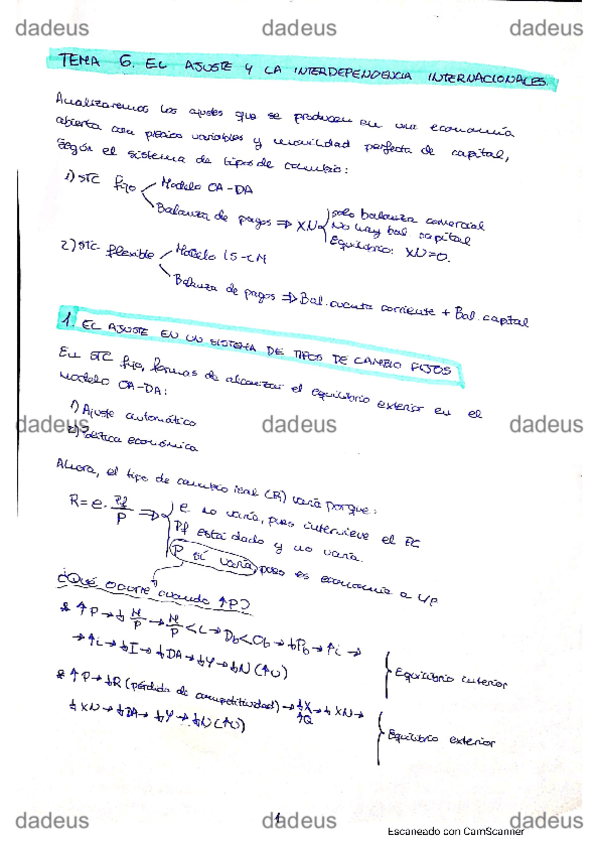 dadeus dadeus dadeus
TEMA 6. EL AJUSTE Y LA INTERDEPENDENCIA INTERNACIONALES.
Analizaremos los ajustes que se producen en una economía
abierta con precios variables y movilidad perfecta de capital,
según el sistema de tipos de cambio:
1) STC fijo Modelo OA-DA
Balanza de pagos ⇒ XN solo balanza comercial
No hay bal capital
Equilibrio: XN=0.
2) STC flexible Modelo IS-LM
Balanza de pagos ⇒ Bal. cuenta corriente + Bal. capital
1. EL AJUSTE EN UN SISTEMA DE TIPOS DE CAMBIO FIJOS
En STC fijo, formas de alcanzar el equilibrio exterior en el
modelo OA-DA:
1) Ajuste automático
dadeus dadeus dadeus
2) Política económica
Ahora, el tipo de cambio real (R) varía porque:
R = e · Pf / P ⇒ e no varía, pues interviene el BC
Pf está dado y no varía.
P sí varía, pues es economía a l/p
¿Qué ocurre cuando ↑P?
* ↑P → ↓ M/P → M/P < L → Db < Ob → ↓Pb → ↑i →
→ ↑i → ↓I → ↓DA → ↓Y → ↓N (↑U) Equilibrio interior
* ↑P → ↓R (pérdida de competitividad) → ↓X ↑Q → ↓XN →
↓XN → ↓DA → ↓Y → ↓N (↑U) Equilibrio exterior
1
dadeus dadeus dadeus
Escaneado con CamScanner